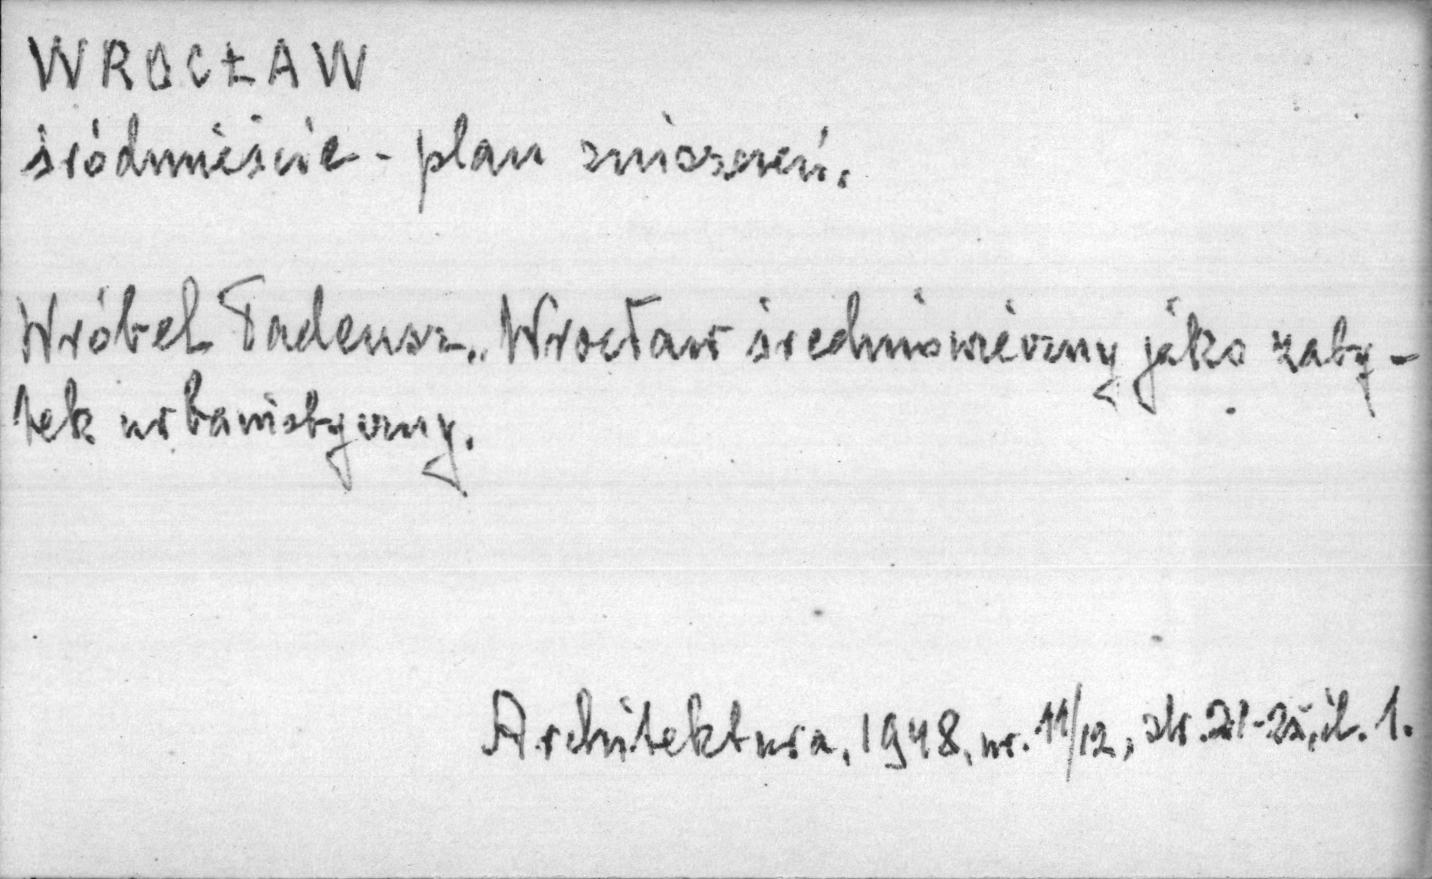 WROCŁAW
śródmieście - plan zniszczeń.
Wróbel Tadeusz, „Wrocław średniowieczny jako zaby-
tek urbanistyczny.
Architektura, 1948, nr. 11/12, str. 21-25, il. 1.